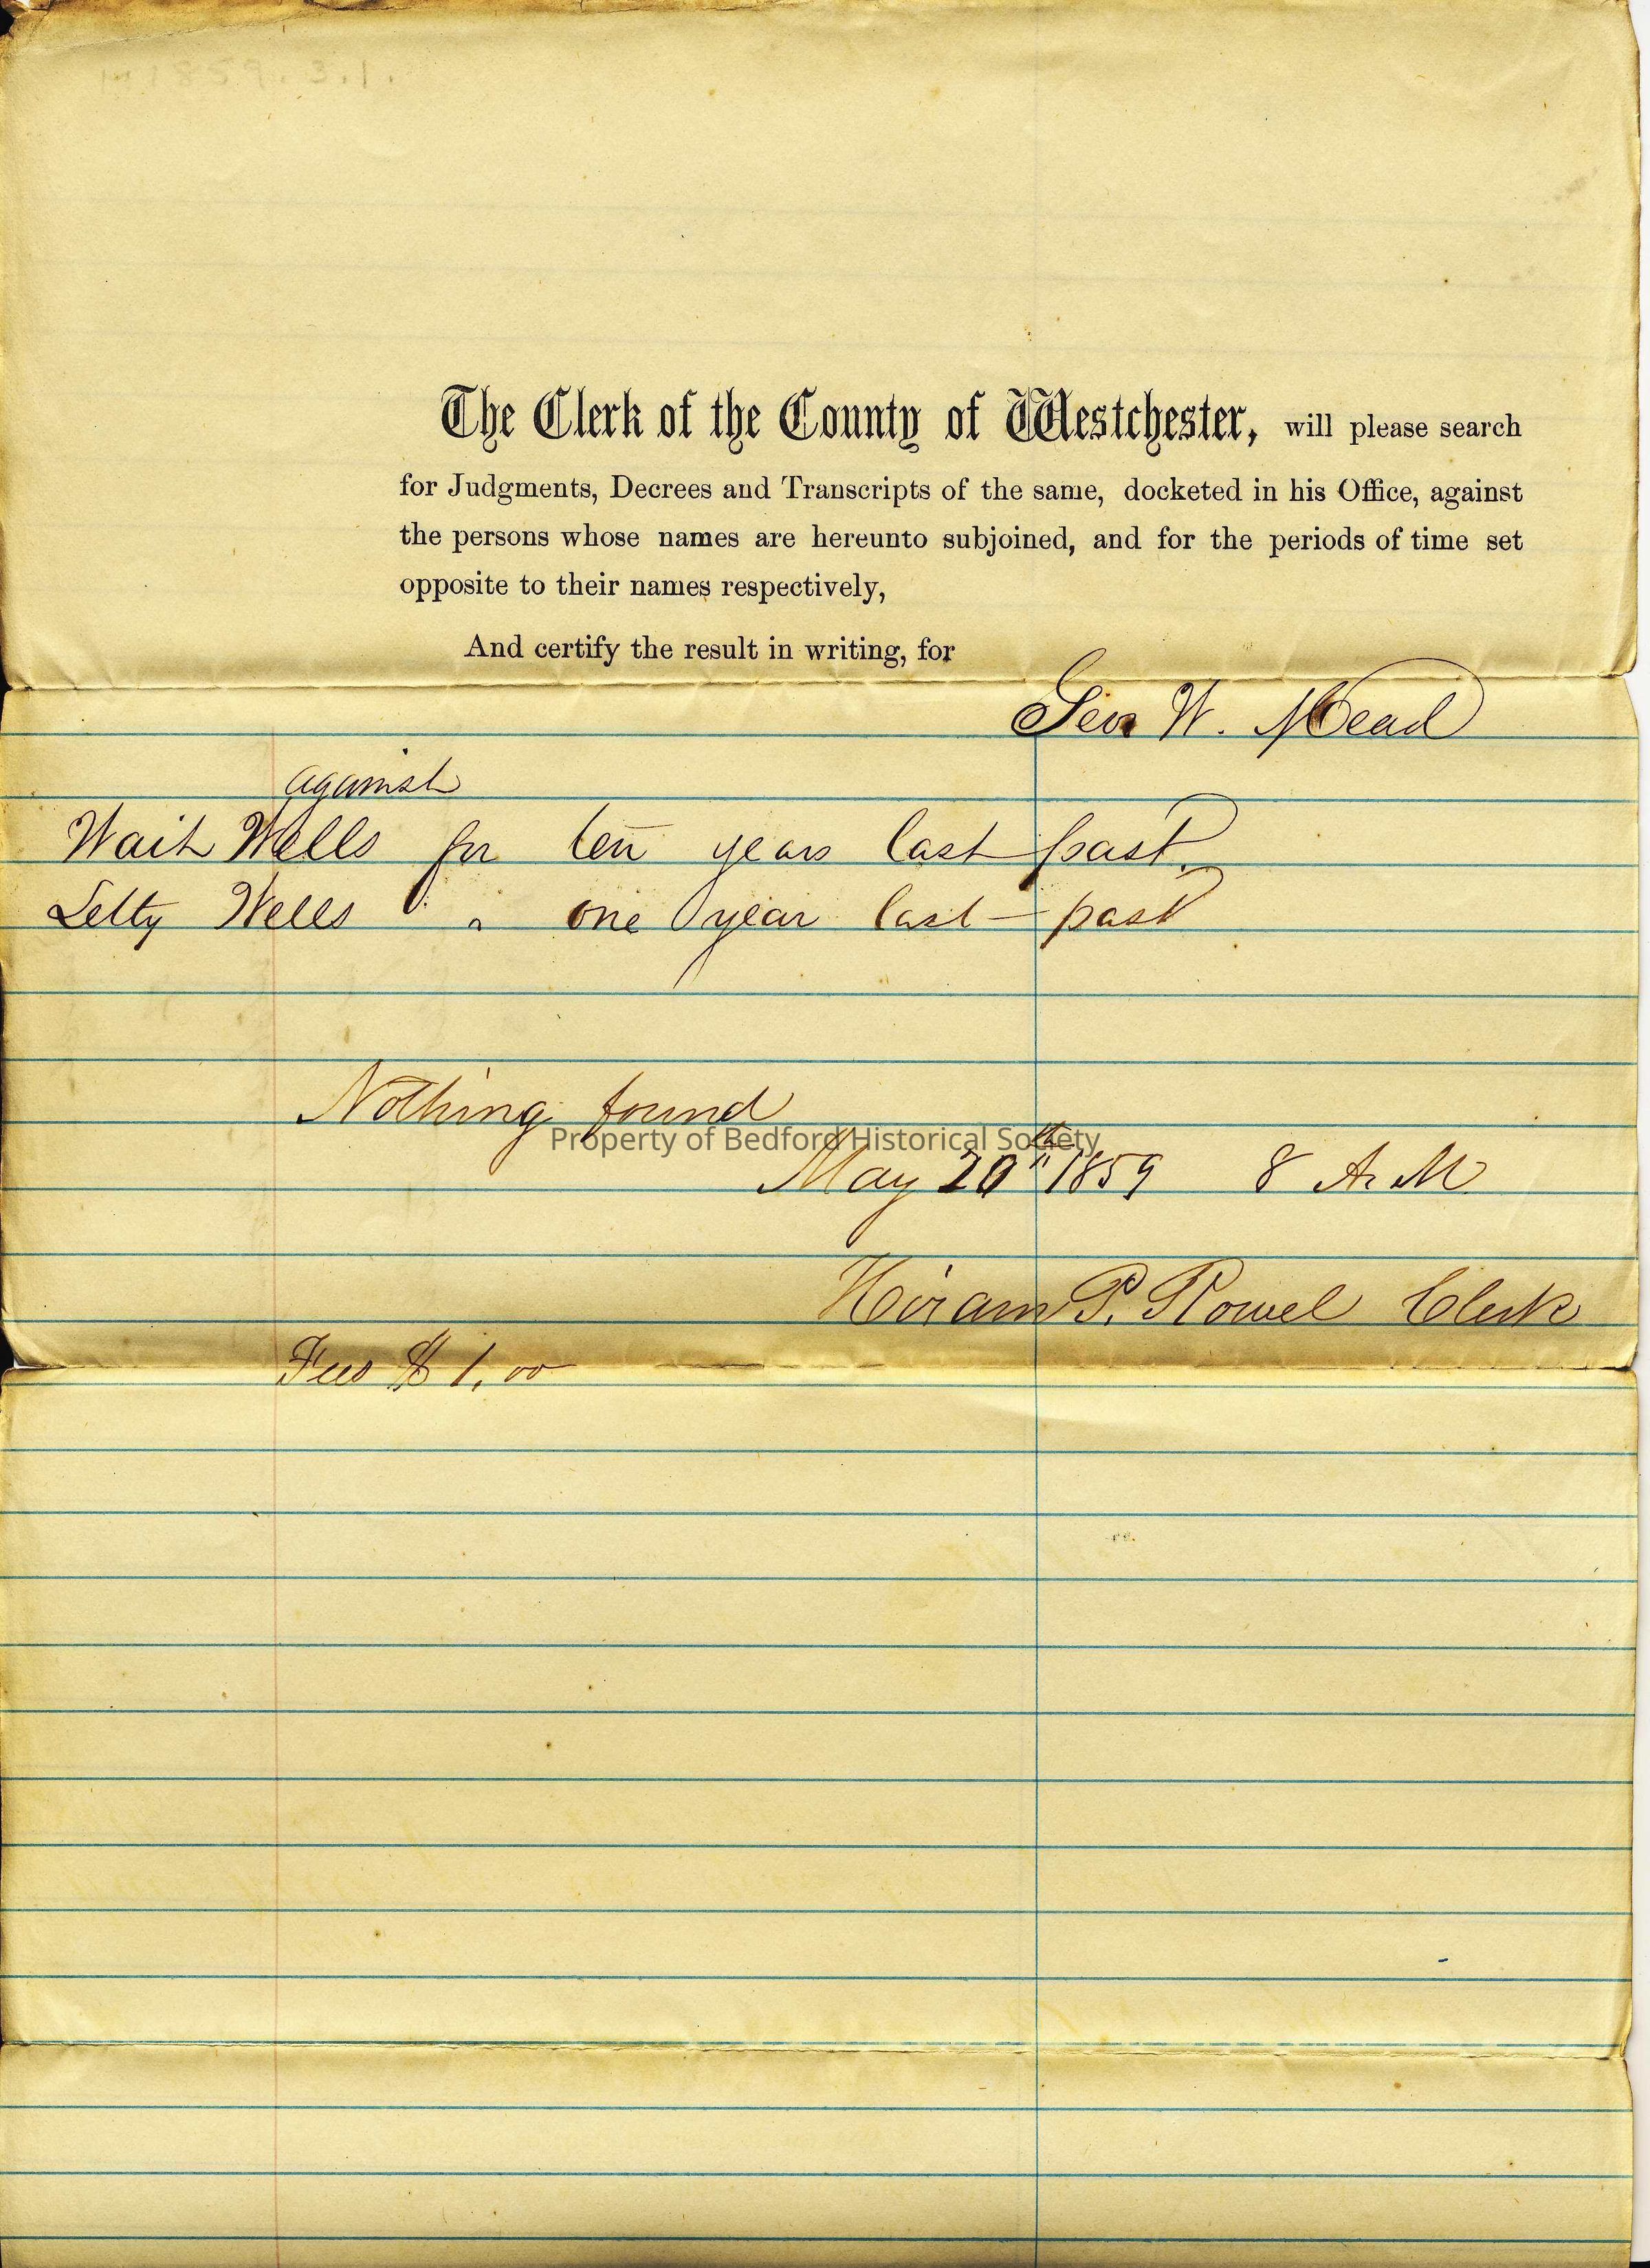 The Clerk of the County of Westchester, will please search
for Judgments, Decrees and Transcripts of the same, docketed in his Office, against
the persons whose names are hereunto subjoined, and for the periods of time set
opposite to their names respectively,
And certify the result in writing, for
Geo W. Mead
against
Wait Wells for ten years last past.
Letty Wells " one year last past
Nothing found
Property of Bedford Historical Society
May 20th 1859 8 A. M.
Hiram P. Rowel Clerk
Fees $1.00